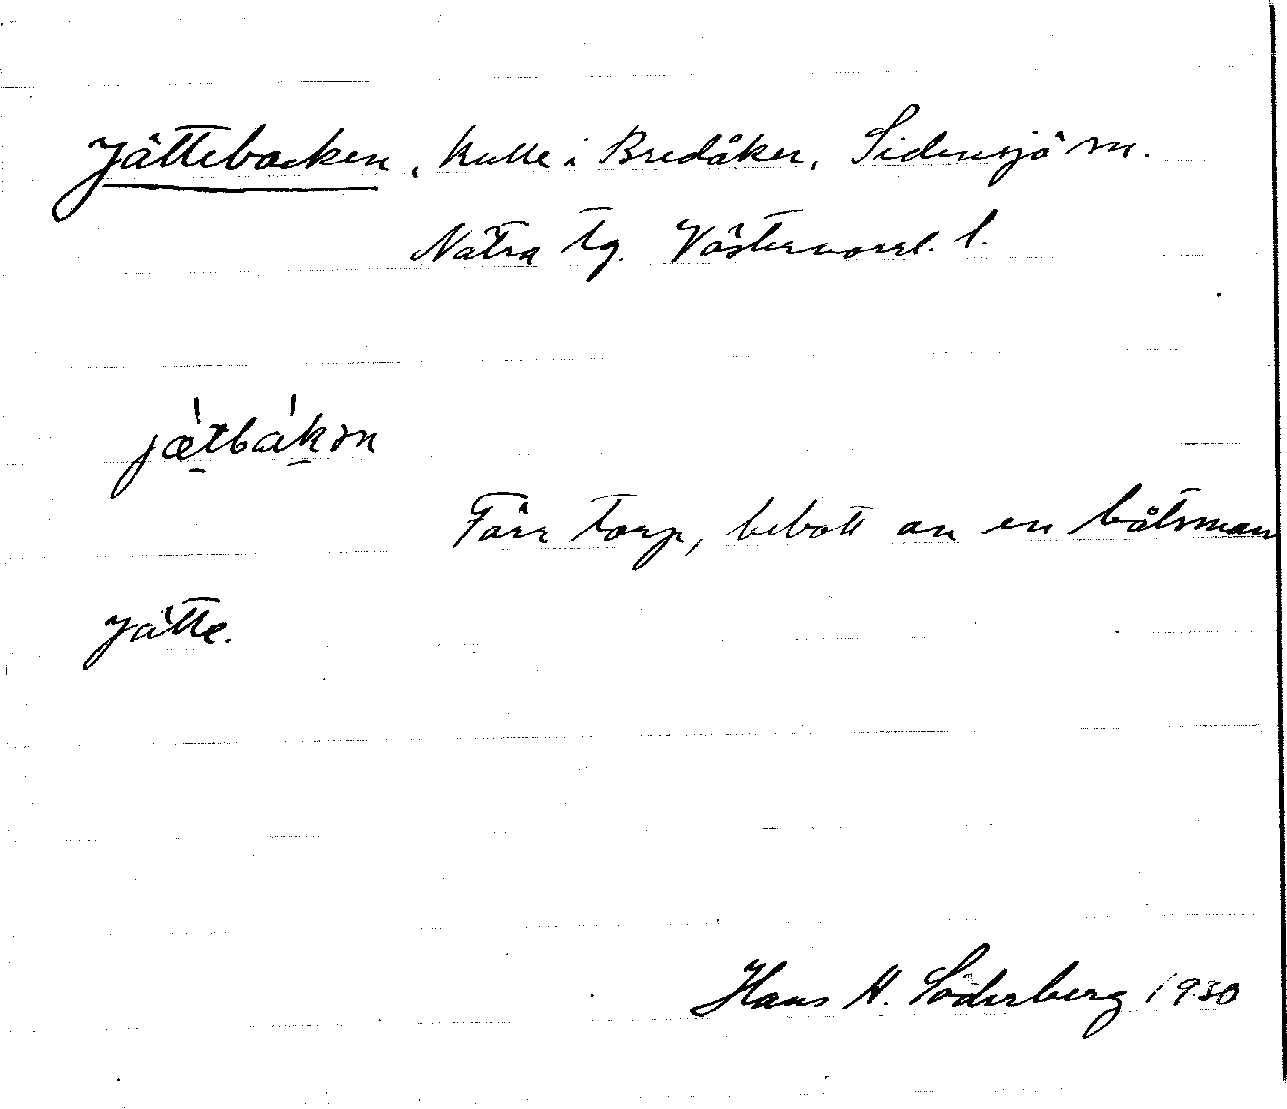 Jättebacken, kulle i Bredåker, Sidensjö sn.
Nätra tg. Västernorrl. l.
jætbakən
Förr torp, bebott av en båtsman
Jätte.
Hans H. Söderberg 1930